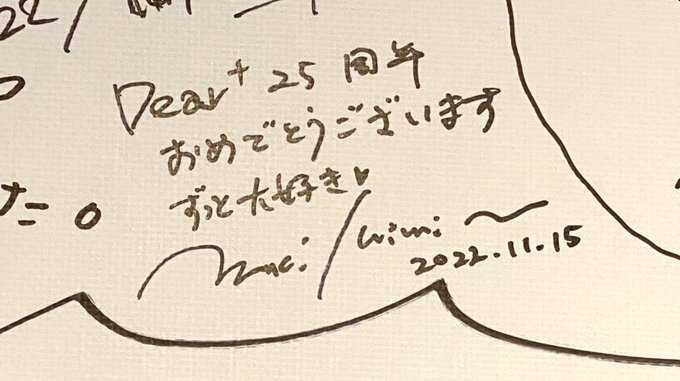 22/
Dear+ 25周年
おめでとうございます
ずっと大好き♥
2022.11.15
た。